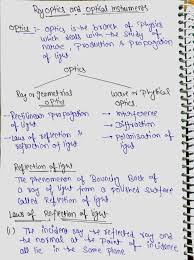 Ray optics and optical instruments
Optics :- Optics is the branch of Physics
which deals with the study of
nature, Production & Propagation
of light.
Optics
Ray or Geometrical Optics
Wave or Physical optics
→ Rectilinear Propagation of light
→ Laws of reflection & refraction of light
→ Interference
→ Diffraction
→ Polarisation of light
Reflection of light
The phenomenon of Bouncing Back of
a ray of light from a polished surface
called Reflection of light
Laws of Reflection of light-
(i) The incident ray the reflected ray and
the normal at the Point of incidence
all lie in the same plane